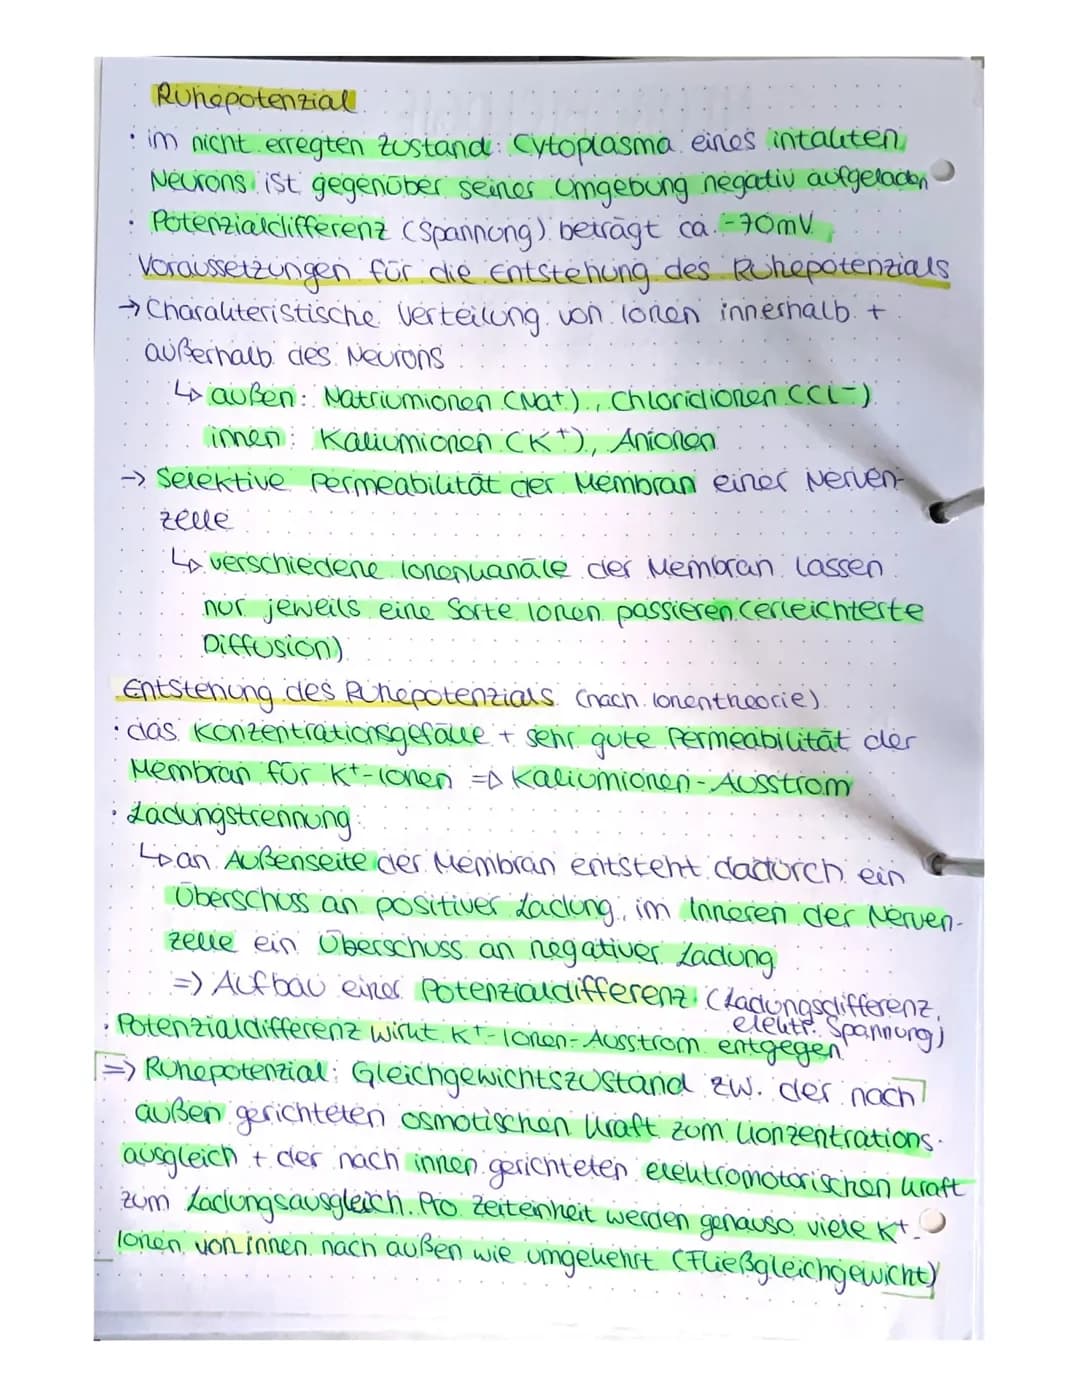 Ruhepotenzial
· im nicht erregten Zustand: Cytoplasma eines intakten
Neurons ist gegenüber seiner Umgebung negativ aufgeladen
· Potenzialdifferenz (Spannung) beträgt ca. -70mV
Voraussetzungen für die Entstehung des Ruhepotenzials
→ Charakteristische Verteilung von Ionen innerhalb +
außerhalb des Neurons
↳ außen: Natriumionen (Na+), Chloridionen (Cl-)
innen: Kaliumionen (K+), Anionen
→ Selektive Permeabilität der Membran einer Nerven-
zelle
↳ verschiedene Ionenkanäle der Membran lassen
nur jeweils eine Sorte Ionen passieren (erleichterte
Diffusion)
Entstehung des Ruhepotenzials (nach Ionentheorie)
· das Konzentrationsgefälle + sehr gute Permeabilität der
Membran für K+-Ionen => Kaliumionen-Ausstrom
· Ladungstrennung
↳ an Außenseite der Membran entsteht dadurch ein
Überschuss an positiver Ladung, im Inneren der Nerven-
zelle ein Überschuss an negativer Ladung
=> Aufbau einer Potenzialdifferenz (Ladungsdifferenz,
elektr. Spannung)
· Potenzialdifferenz wirkt K+-Ionen-Ausstrom entgegen
=> Ruhepotenzial: Gleichgewichtszustand zw. der nach
außen gerichteten osmotischen Kraft zum Konzentrations-
ausgleich + der nach innen gerichteten elektromotorischen Kraft
zum Ladungsausgleich. Pro Zeiteinheit werden genauso viele K+-
Ionen von innen nach außen wie umgekehrt (Fließgleichgewicht)